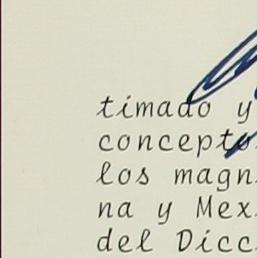 timado y
concepto
los magn
na y Mex
del Dicc